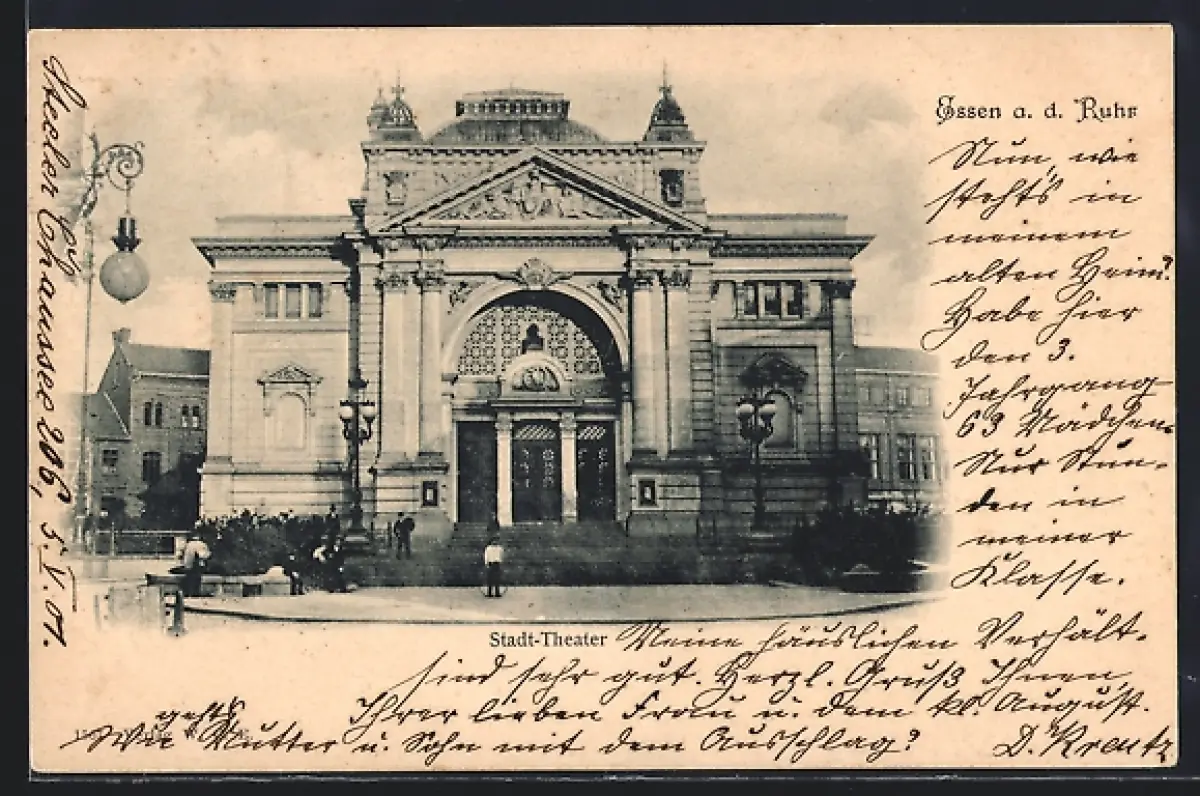 Essen a. d. Ruhr
Nun, wie
steht's in
meinem
alten Heim?
Habe hier
den 3.
Jahrgang
63 Mädchen.
Nur Stun-
den in
meiner
Klasse.
Stadt-Theater Meine häuslichen Verhält.
sind sehr gut. Herzl. Gruß Ihnen,
Ihrer lieben Frau u. dem kl. August.
Wie geht's Mutter u. Sohn mit dem Ausschlag? D. Kreutz
Steeler Chaussee 206, 5.V.01.